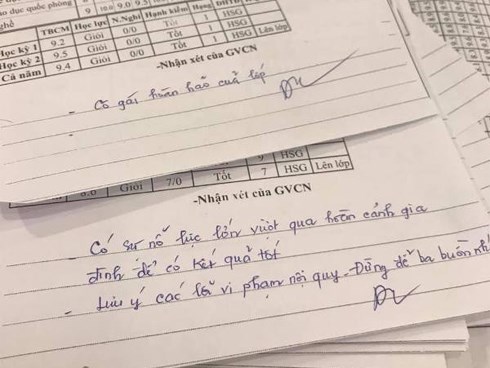 dục quốc phòng
nghề
9 10.0 9.0 9.5
TBCM Học lực N.Nghỉ Hạnh kiểm Hạng
Học kỳ 1 9.2 Giỏi 0/0 Tốt 1 HSG
Học kỳ 2 9.5 Giỏi 0/0 Tốt 1 HSG
Cả năm 9.4 Giỏi 0/0 Tốt 1 HSG Lên lớp
-Nhận xét của GVCN
- Cô gái hoàn hảo của lớp
9 HSG
8.0 Giỏi 7/0 Tốt 7 HSG Lên lớp
-Nhận xét của GVCN
- Có sự nỗ lực lớn vượt qua hoàn cảnh gia
đình để có kết quả tốt
- Lưu ý các lỗi vi phạm nội quy. Đừng để ba buồn